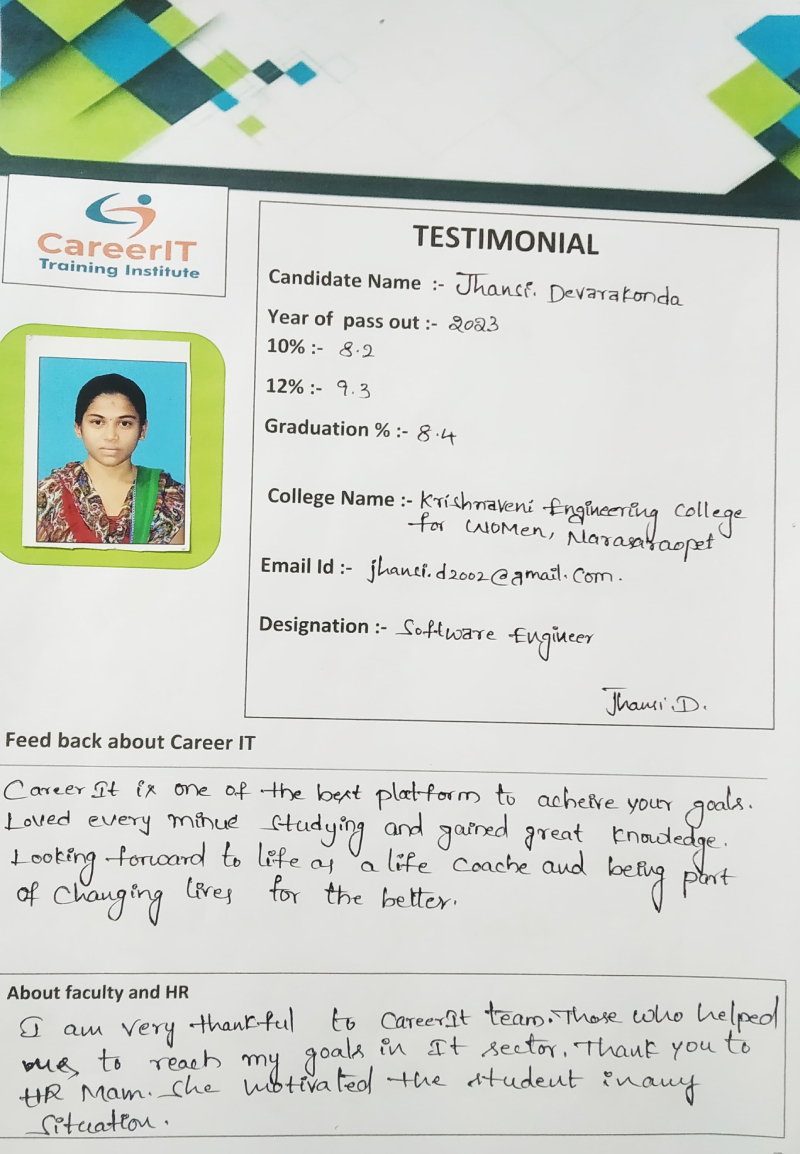 CareerIT
Training Institute
TESTIMONIAL
Candidate Name :- Jhansi. Devarakonda
Year of pass out :- 2023
10% :- 8.2
12% :- 9.3
Graduation % :- 8.4
College Name :- Krishnaveni Engineering College
for WOMen, Narasaraopet
Email Id :- jhansi.d2002@gmail.com.
Designation :- Software Engineer
Jhansi.D.
Feed back about Career IT
Career It is one of the best platform to acheive your goals.
Loved every minue studying and gained great knowledge.
Looking forward to life as a life coache and being part
of changing lives for the better.
About faculty and HR
I am very thankful to CareerIt team. Those who helped
to reach my goals in It sector. Thank you to
HR Mam. She motivated the student in any
situation.